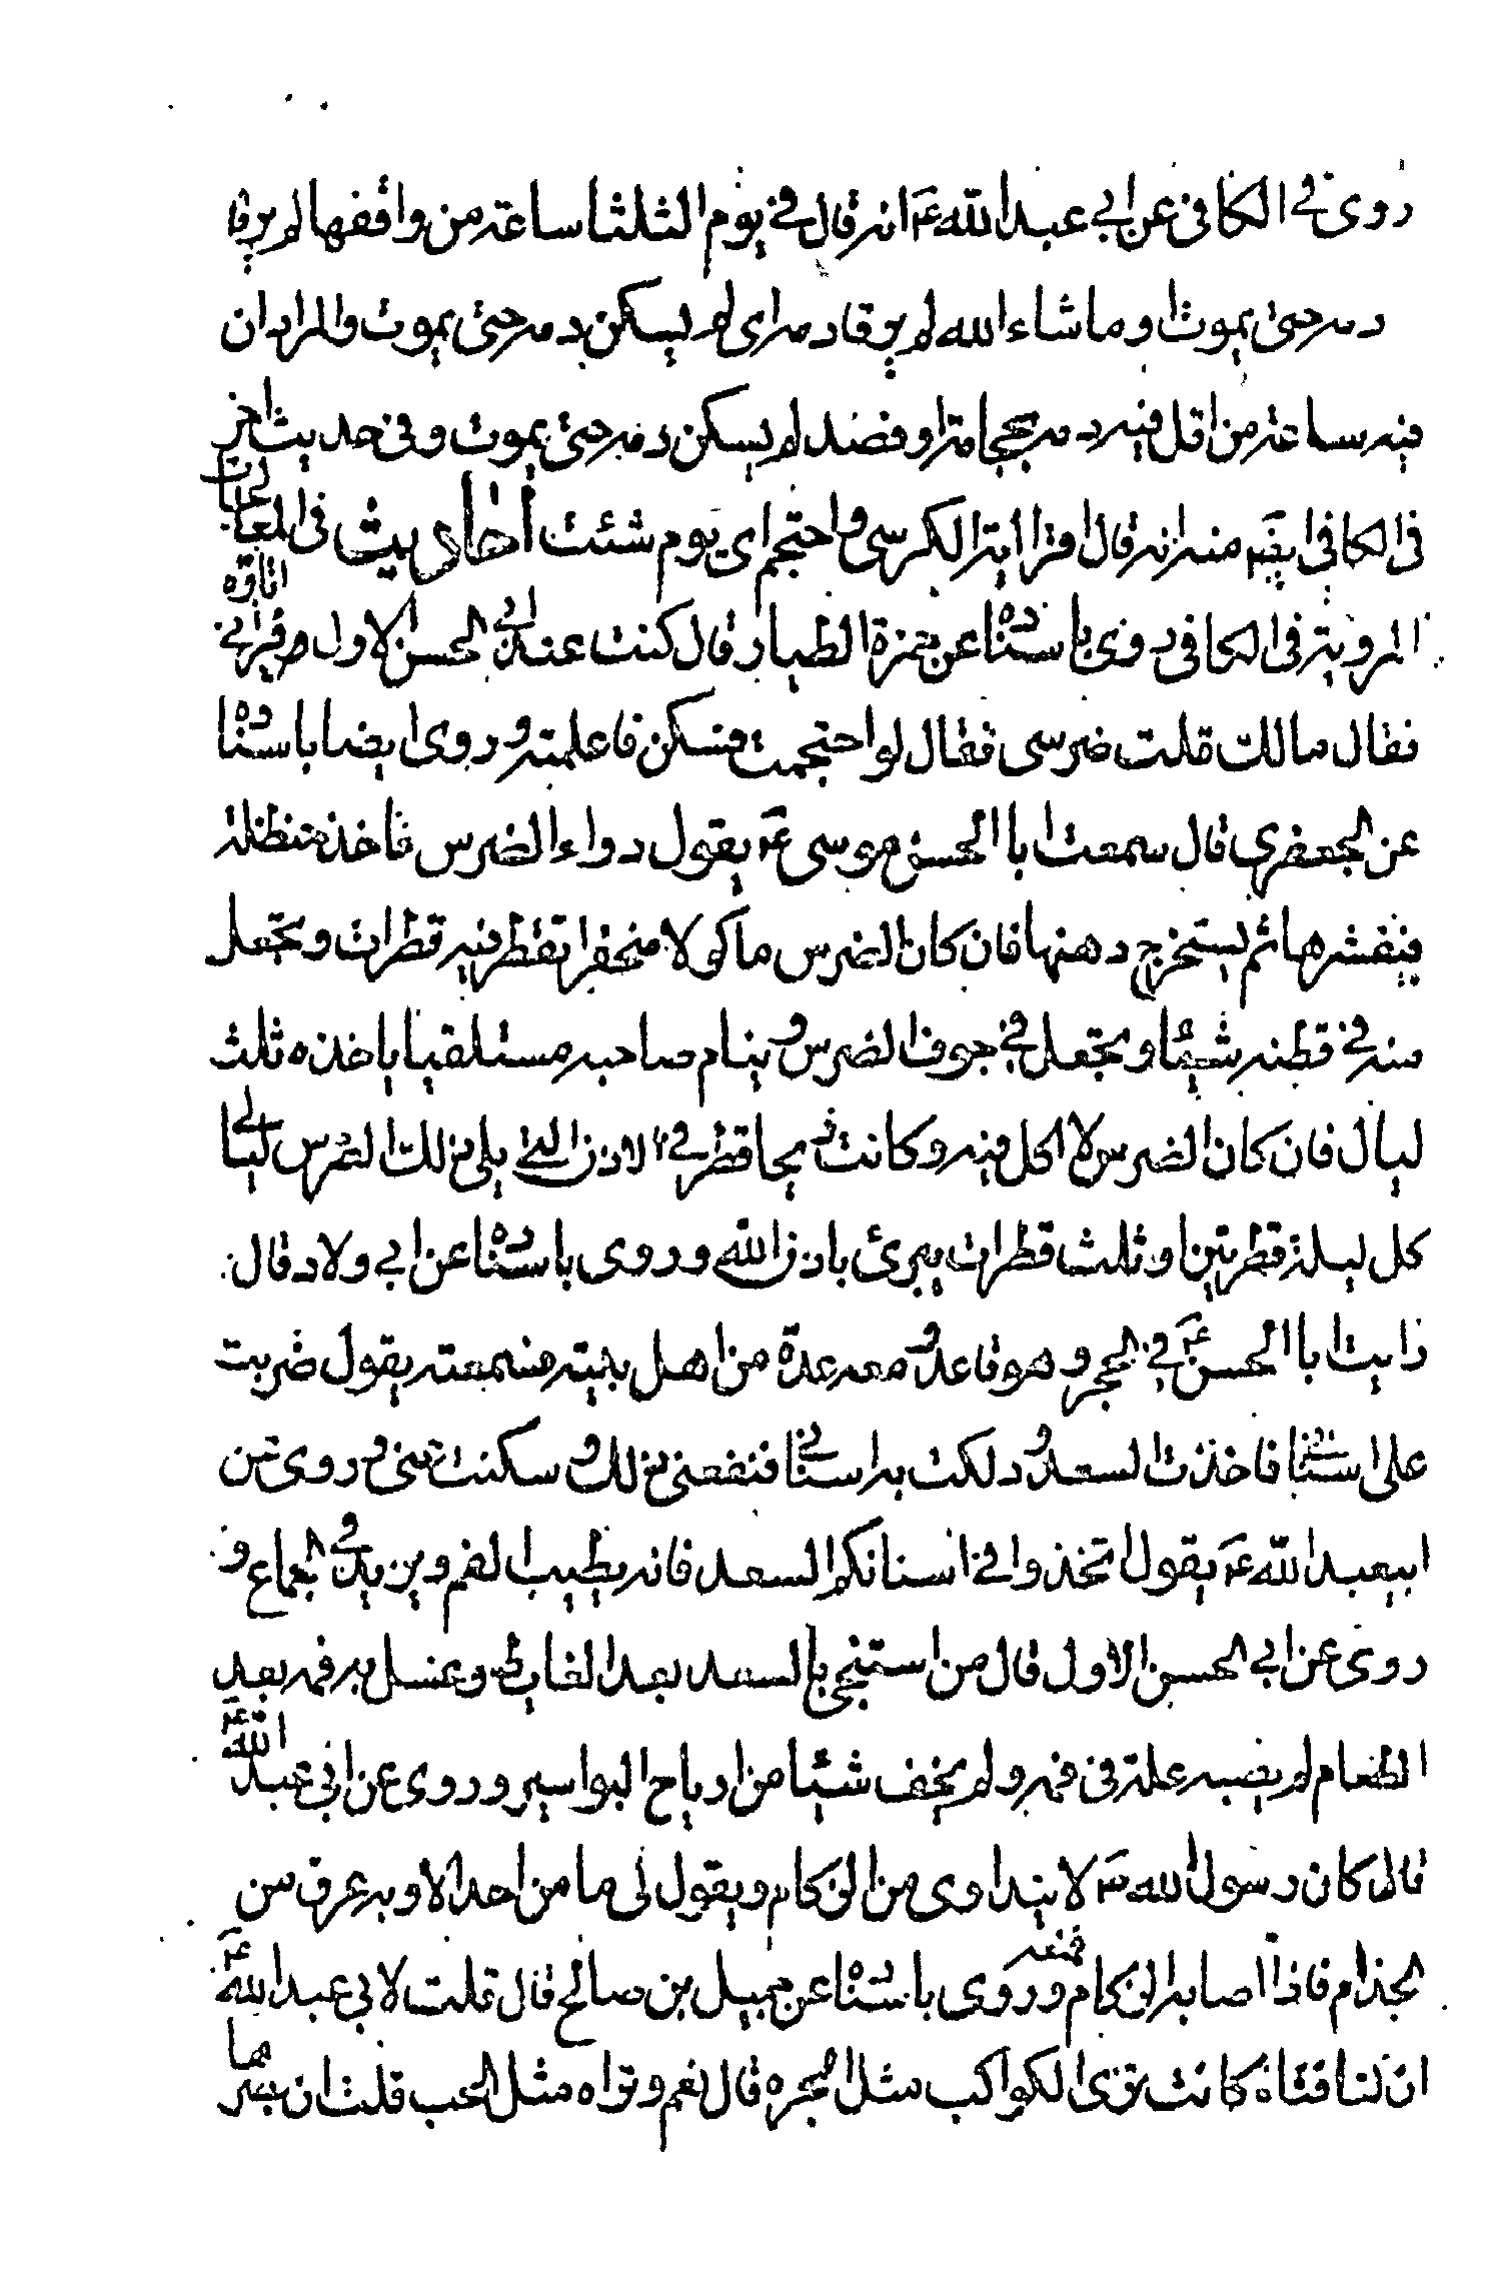 روى في الكافي عن ابي عبد الله ع انه قال في يوم الثلثا ساعة من وافقها لم يرقا
دمه حتى يموت او ما شاء الله لم يرقا دمه اى لم يسكن دمه حتى يموت والمراد ان
فيه ساعة من اقل فيه دمه بحجامة او فصد لم يسكن دمه حتى يموت وفي حديث اخر
في الكافي ايضا منه انه قال اقرا اية الكرسي واحتجم اى يوم شئت احاديث في المعالجات
المروية في الكافي روى باسناده عن حمزة الطيار قال كنت عند ابي الحسن الاول فراني اتاوه
فقال مالك قلت ضرسى فقال لو احتجمت فسكن فاعلمته وروى ايضا باسناده
عن الجعفرى قال سمعت ابا الحسن موسى ع يقول دواء الضرس تاخذ حنظلة
فيقشرها ثم يستخرج دهنها فان كان الضرس ماكولا منحفرا تقطر فيه قطرات ويجعل
منه في قطنه شيئا ويجعل في جوف الضرس وينام صاحبه مستلقيا ياخذه ثلث
ليال فان كان الضرس لا اكل فيه وكانت ريحا قطر في الاذن التي يلى ذلك الضرس ليالي
كل ليلة قطرتين او ثلث قطرات يبرئ باذن الله وروى باسناده عن ابي ولاد قال
رايت ابا الحسن ع في الحجر وهو قاعد ومعه عدة من اهل بيته فسمعته يقول ضربت
على اسناني فاخذت السعد ودلكت به اسناني فنفعنى ذلك وسكنت عنى وروى عن
ابيعبد الله ع يقول اتخذوا في اسنانكم السعد فانه يطيب الفم ويزيد في الجماع و
روى عن ابي الحسن الاول قال من استنجى بالسعد بعد الغايط وغسل به فمه بعد
الطعام لم يصبه علة في فمه ولم يخف شيئا من ارياح البواسير وروى عن ابي عبد الله ع
قال كان رسول الله ص لا يتداوى من الزكام ويقول لى ما من احد الا وبه عرق من
الجذام فاذا اصابه الزكام قمعه وروى باسناده عن جميل بن صالح قال قلت لابي عبد الله ع
ان لنا فتاة كانت ترى الكواكب مثل الجره قال نعم وتراه مثل الحب قلت ان بصرها